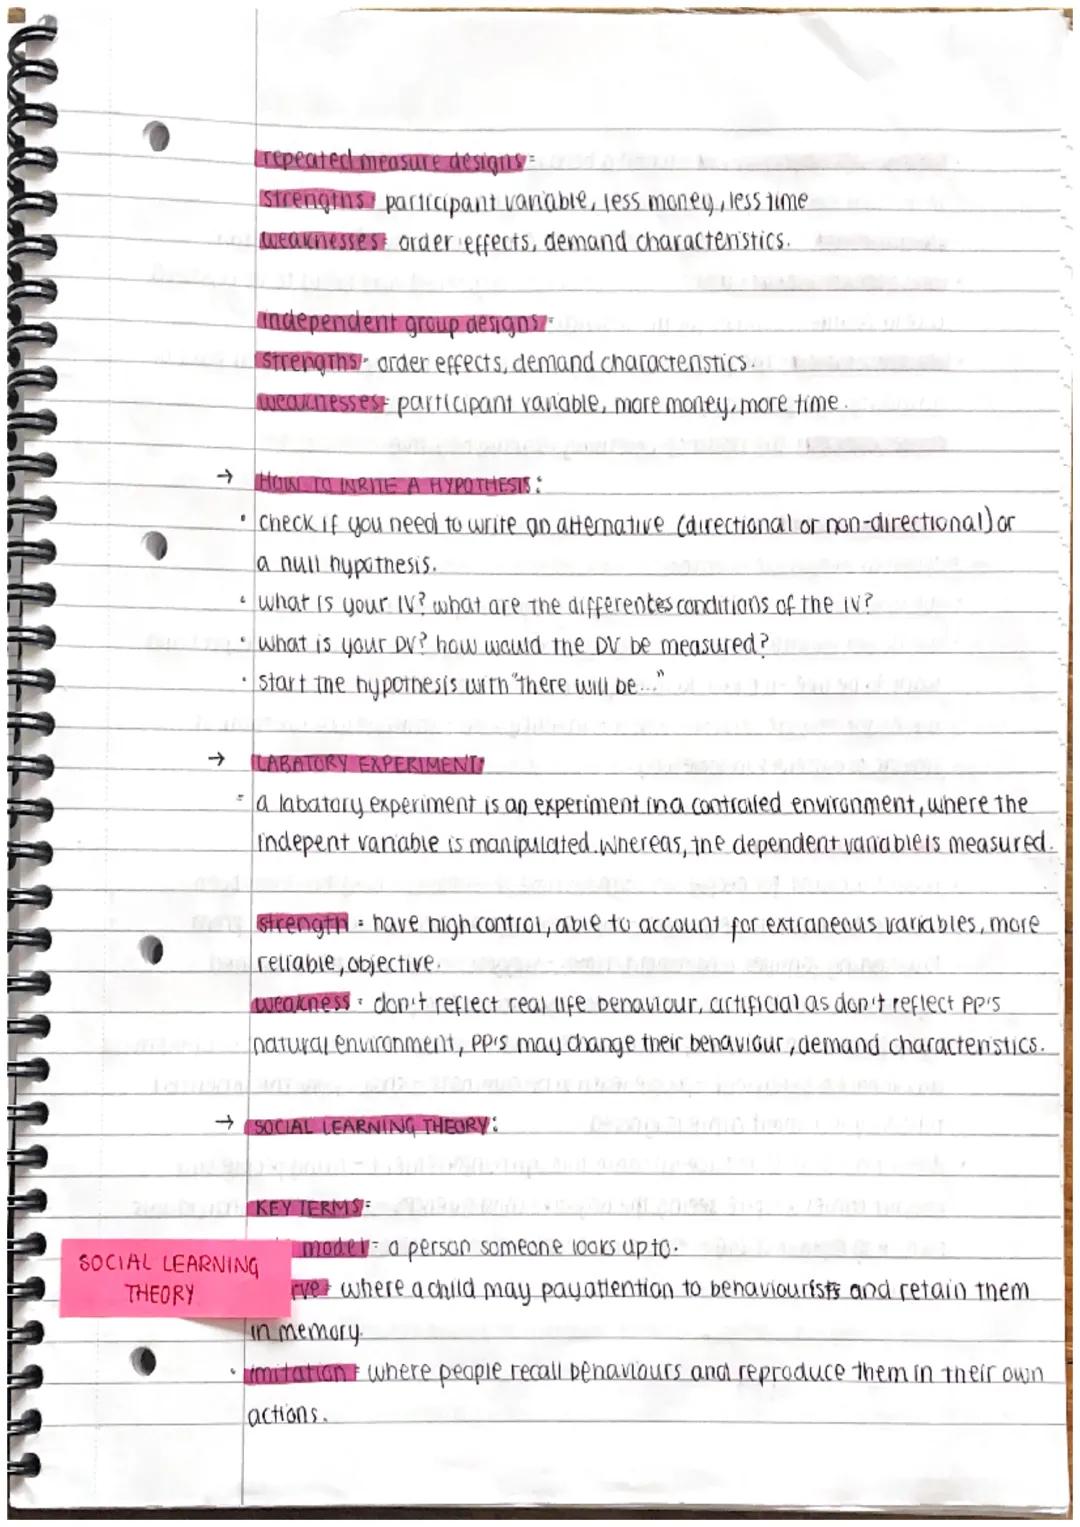 repeated measure designs =
strengths: participant variable, less money, less time
weaknesses: order effects, demand characteristics.
independent group designs =
strengths = order effects, demand characteristics.
weaknesses = participant variable, more money, more time.
→ HOW TO WRITE A HYPOTHESIS:
• check if you need to write an alternative (directional or non-directional) or
a null hypothesis.
• what is your IV? what are the differentes conditions of the IV?
• what is your DV? how would the DV be measured?
• start the hypothesis with "there will be..."
→ LABATORY EXPERIMENT:
= a labatory experiment is an experiment in a controlled environment, where the
indepent variable is manipulated. Whereas, the dependent variable is measured.
strength = have high control, able to account for extraneous variables, more
reliable, objective.
weakness = don't reflect real life behaviour, artificial as don't reflect PP's
natural environment, PP's may change their behaviour, demand characteristics.
→ SOCIAL LEARNING THEORY:
KEY TERMS =
model = a person someone looks up to.
SOCIAL LEARNING
THEORY
rve = where a child may pay attention to behaviourists and retain them
in memory.
• imitation = where people recall behaviours and reproduce them in their own
actions.